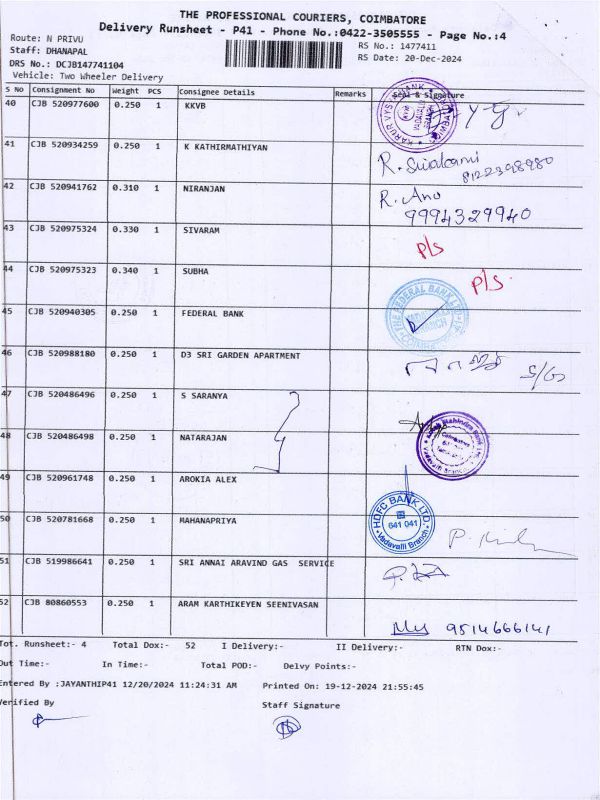 THE PROFESSIONAL COURIERS, COIMBATORE
Delivery Runsheet - P41 - Phone No.:0422-3505555 - Page No.:4
Route: N PRIVU
RS No.: 1477411
Staff: DHANAPAL
RS Date: 20-Dec-2024
DRS No.: DCJB147741104
Vehicle: Two Wheeler Delivery
S No Consignment No Weight PCS Consignee Details Remarks Seal & Signature
40 CJB 520977600 0.250 1 KKVB
41 CJB 520934259 0.250 1 K KATHIRMATHIYAN
8122398980
42 CJB 520941762 0.310 1 NIRANJAN R. Ano
9994329940
43 CJB 520975324 0.330 1 SIVARAM P/S
44 CJB 520975323 0.340 1 SUBHA P/S
45 CJB 520940305 0.250 1 FEDERAL BANK THE FEDERAL BANK LTD
46 CJB 520988180 0.250 1 D3 SRI GARDEN APARTMENT
47 CJB 520486496 0.250 1 S SARANYA
48 CJB 520486498 0.250 1 NATARAJAN
49 CJB 520961748 0.250 1 AROKIA ALEX
50 CJB 520781668 0.250 1 MAHANAPRIYA HDFC BANK LTD. 641 041 Vadavalli Branch
51 CJB 519986641 0.250 1 SRI ANNAI ARAVIND GAS SERVICE
52 CJB 80860553 0.250 1 ARAM KARTHIKEYEN SEENIVASAN
9514666141
Tot. Runsheet:- 4 Total Dox:- 52 I Delivery:- II Delivery:- RTN Dox:-
Out Time:- In Time:- Total POD:- Delvy Points:-
Entered By :JAYANTHIP41 12/20/2024 11:24:31 AM Printed On: 19-12-2024 21:55:45
Verified By Staff Signature